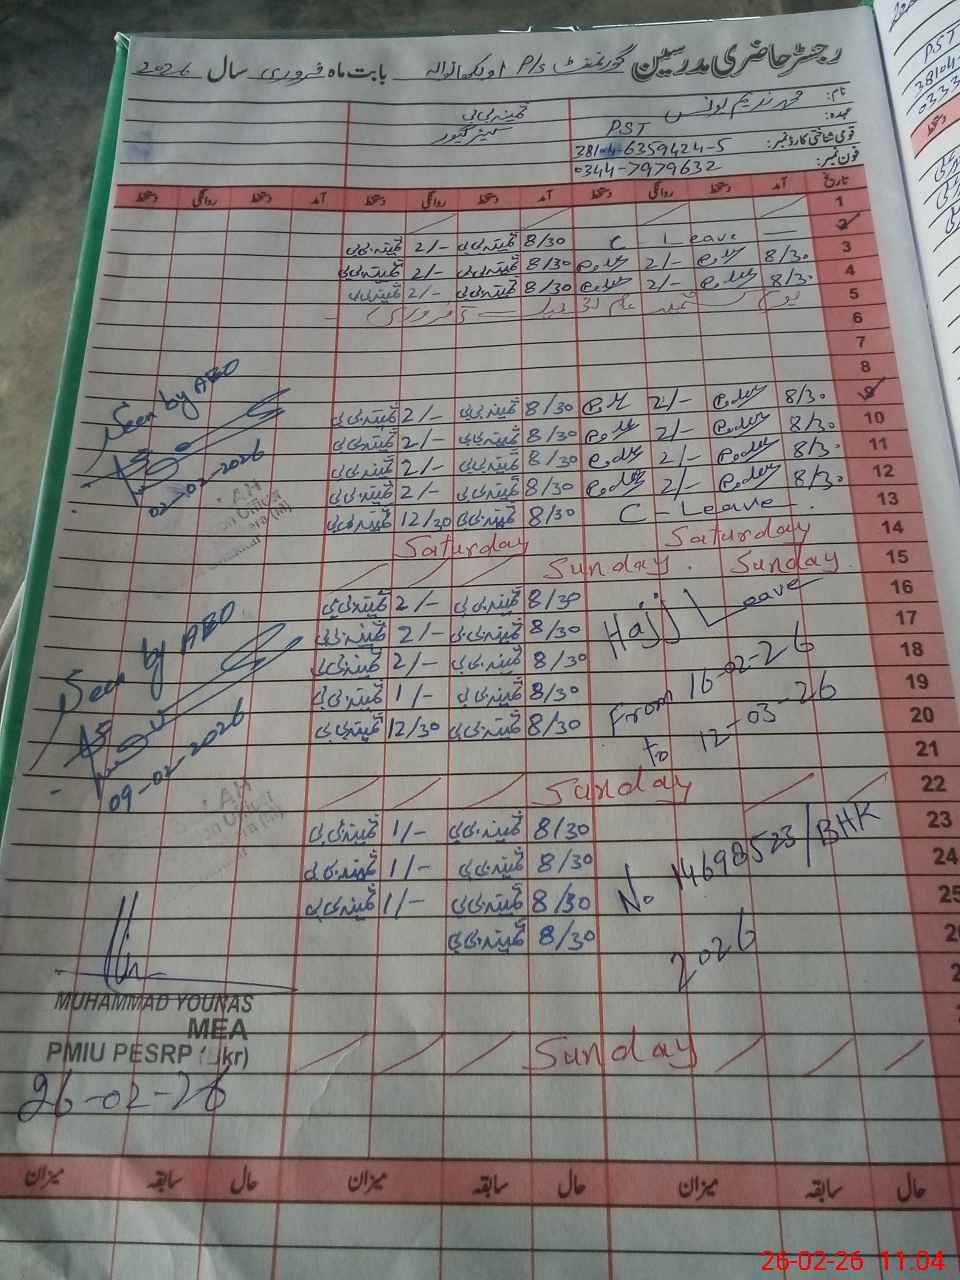 رجسٹر حاضری مدرسین گورنمنٹ P/S اوبکوانوالہ بابت ماہ فروری سال 2026
نام: محمد ندیم یونس ثمینہ بی بی
عہدہ: PST
قومی شناختی کارڈ نمبر: 38104-6359424-5
فون نمبر: 0344-7979632
تاریخ آمد دستخط روانگی دستخط آمد دستخط روانگی دستخط آمد دستخط روانگی دستخط
1
2 C - Leave 8/30 ثمینہ بی بی 2/- ثمینہ بی بی
3 8/30 2/- 8/30 ثمینہ بی بی 2/- ثمینہ بی بی
4 8/30 2/- 8/30 ثمینہ بی بی 2/- ثمینہ بی بی
5
6
7
8
9 8/30 2/- 8/30 ثمینہ بی بی 2/- ثمینہ بی بی
10 8/30 2/- 8/30 ثمینہ بی بی 2/- ثمینہ بی بی
11 8/30 2/- 8/30 ثمینہ بی بی 2/- ثمینہ بی بی
12 8/30 2/- 8/30 ثمینہ بی بی 2/- ثمینہ بی بی
13 C - Leave 8/30 ثمینہ بی بی 12/30 ثمینہ بی بی
14 Saturday Saturday
15 Sunday Sunday
16 8/30 ثمینہ بی بی 2/- ثمینہ بی بی
17 8/30 ثمینہ بی بی 2/- ثمینہ بی بی
18 8/30 ثمینہ بی بی 2/- ثمینہ بی بی
19 8/30 ثمینہ بی بی 1/- ثمینہ بی بی
20 8/30 ثمینہ بی بی 12/30 ثمینہ بی بی
21
22 Sunday
23 8/30 ثمینہ بی بی 1/- ثمینہ بی بی
24 8/30 ثمینہ بی بی 1/- ثمینہ بی بی
25 8/30 ثمینہ بی بی 1/- ثمینہ بی بی
8/30 ثمینہ بی بی
Sunday
Hajj Leave
From 16-02-26
to 12-03-26
No 14698523/BHK
2026
Seen by AEO
02-02-2026
Seen by AEO
09-02-2026
MUHAMMAD YOUNAS
MEA
PMIU PESRP (Bkr)
26-02-26
حال سابقہ میزان حال سابقہ میزان حال سابقہ میزان
PST
38104-
0333
26-02-26 11.04